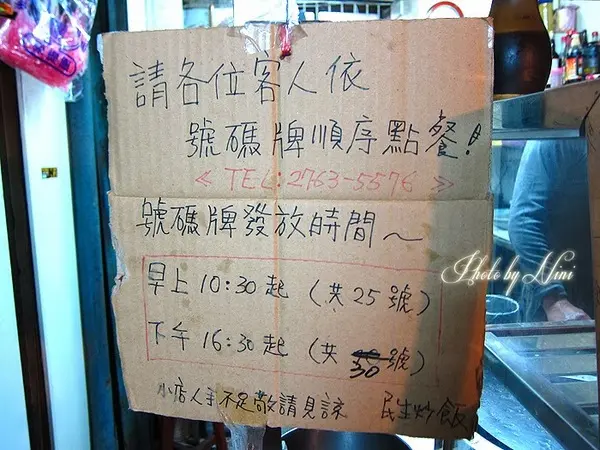 請各位客人依
號碼牌順序點餐!
< TEL:2763-5576 >
號碼牌發放時間~
早上 10:30起 (共25號)
下午 16:30起 (共30號)
小店人手不足敬請見諒 民生炒飯
Photo by Nini